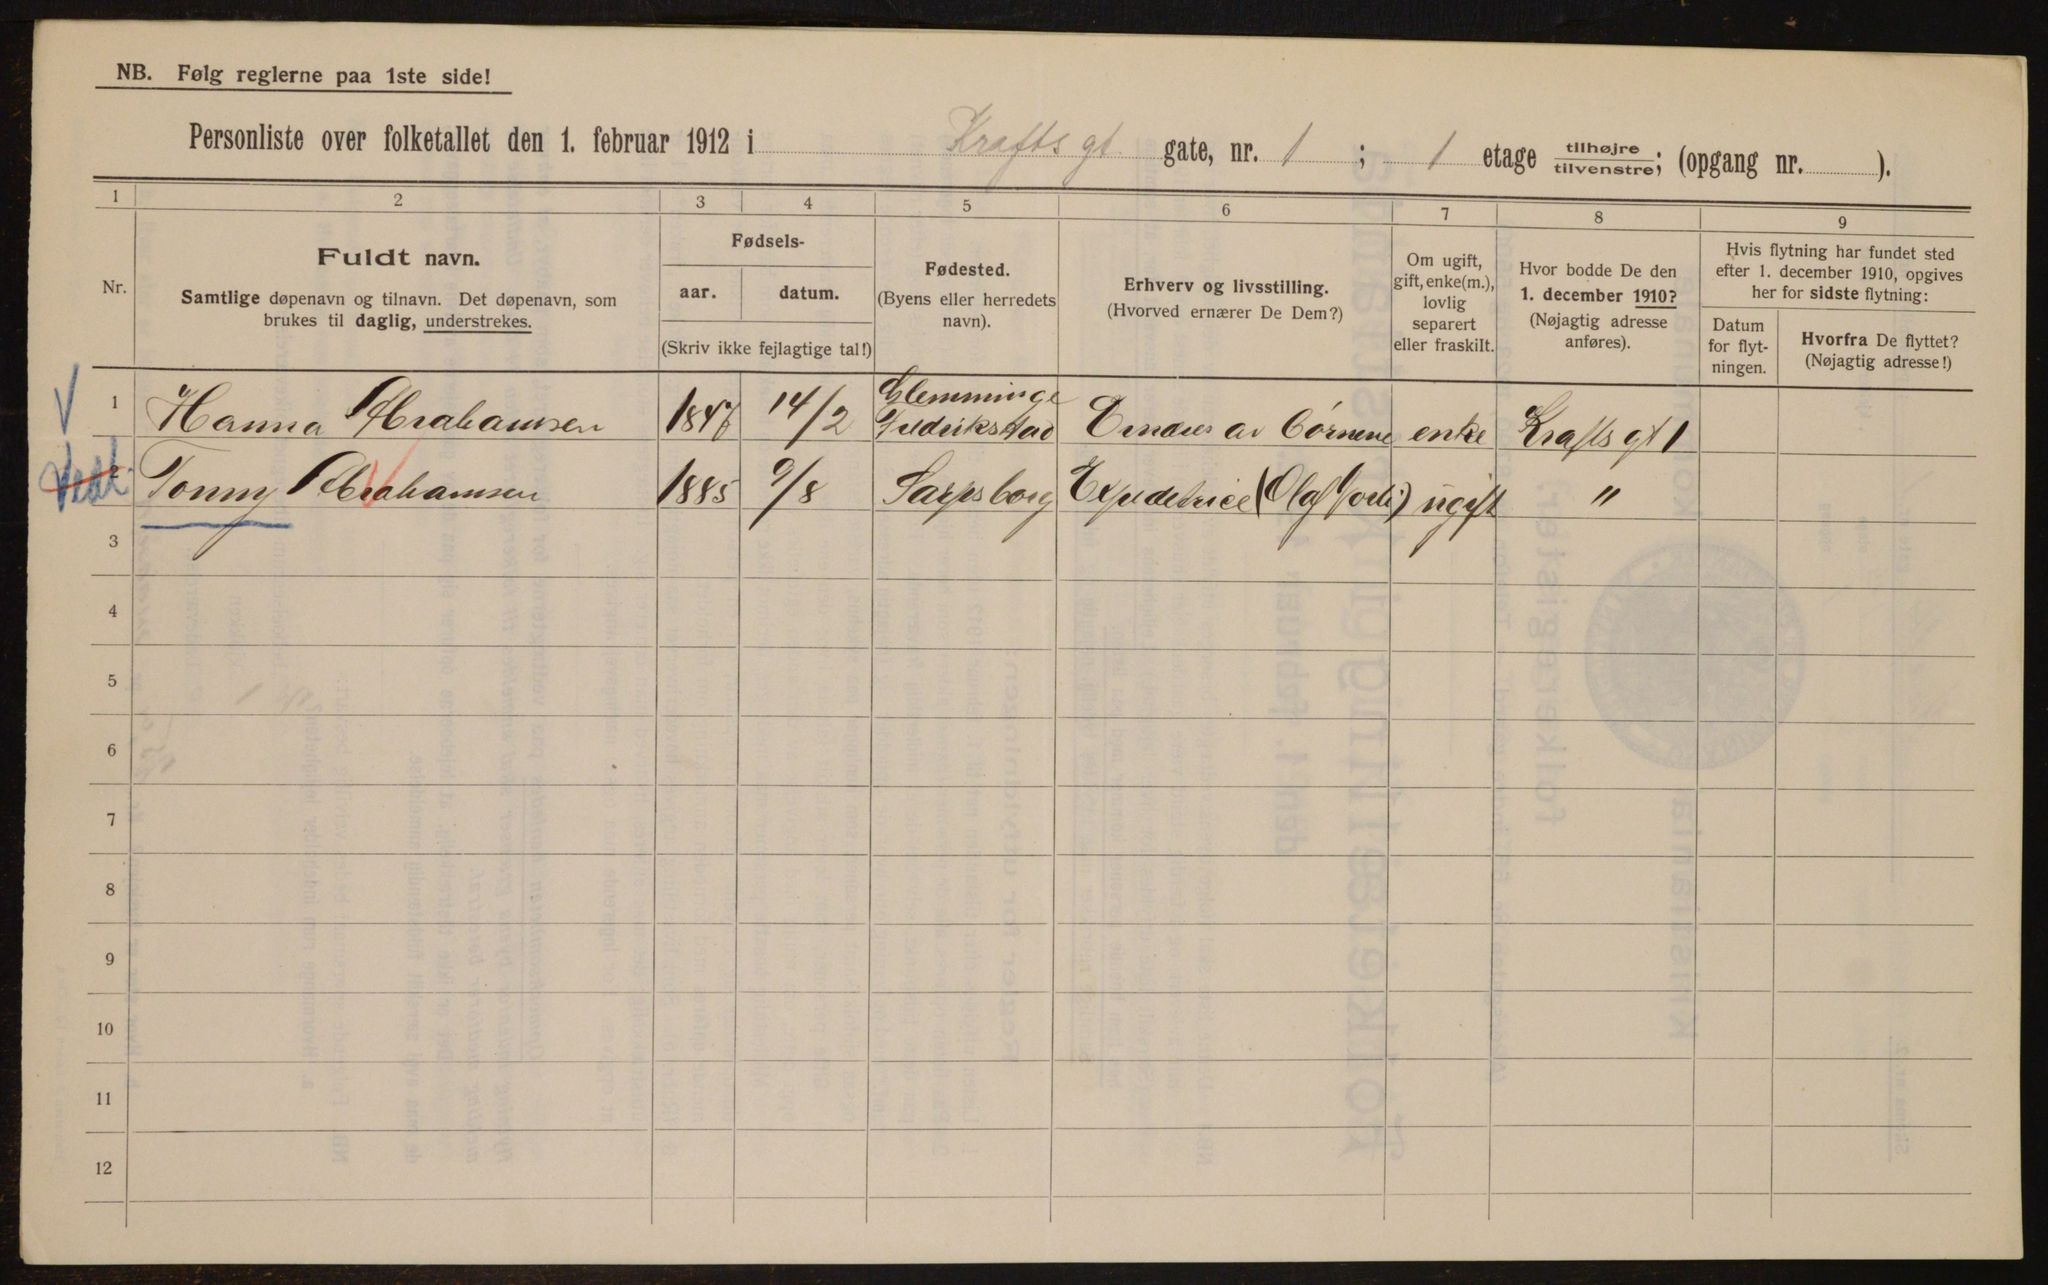 NB. Følg reglerne paa 1ste side!
Personliste over folketallet den 1. februar 1912 i Krafts gt gate, nr. 1 ; 1 etage tilhøjre/tilvenstre; (opgang nr. ).
1 2 3 4 5 6 7 8 9
Nr.
Fuldt navn.
Samtlige døpenavn og tilnavn. Det døpenavn, som
brukes til daglig, understrekes.
Fødsels-
aar. datum.
(Skriv ikke fejlagtige tal!)
Fødested.
(Byens eller herredets
navn).
Erhverv og livsstilling.
(Hvorved ernærer De Dem?)
Om ugift,
gift, enke(m.),
lovlig
separert
eller fraskilt.
Hvor bodde De den
1. december 1910?
(Nøjagtig adresse
anføres).
Hvis flytning har fundet sted
efter 1. december 1910, opgives
her for sidste flytning:
Datum
for flyt-
ningen.
Hvorfra De flyttet?
(Nøjagtig adresse!)
V 1 Hanna Abrahamsen 14/2 Glemminge
Fredrikstad Ernæres av Børnene enke Krafts gt 1
2 Tonny Abrahamsen 1885 9/8 Sarpsborg Expeditrice (Olaf ugift "
3
4
5
6
7
8
9
10
11
12